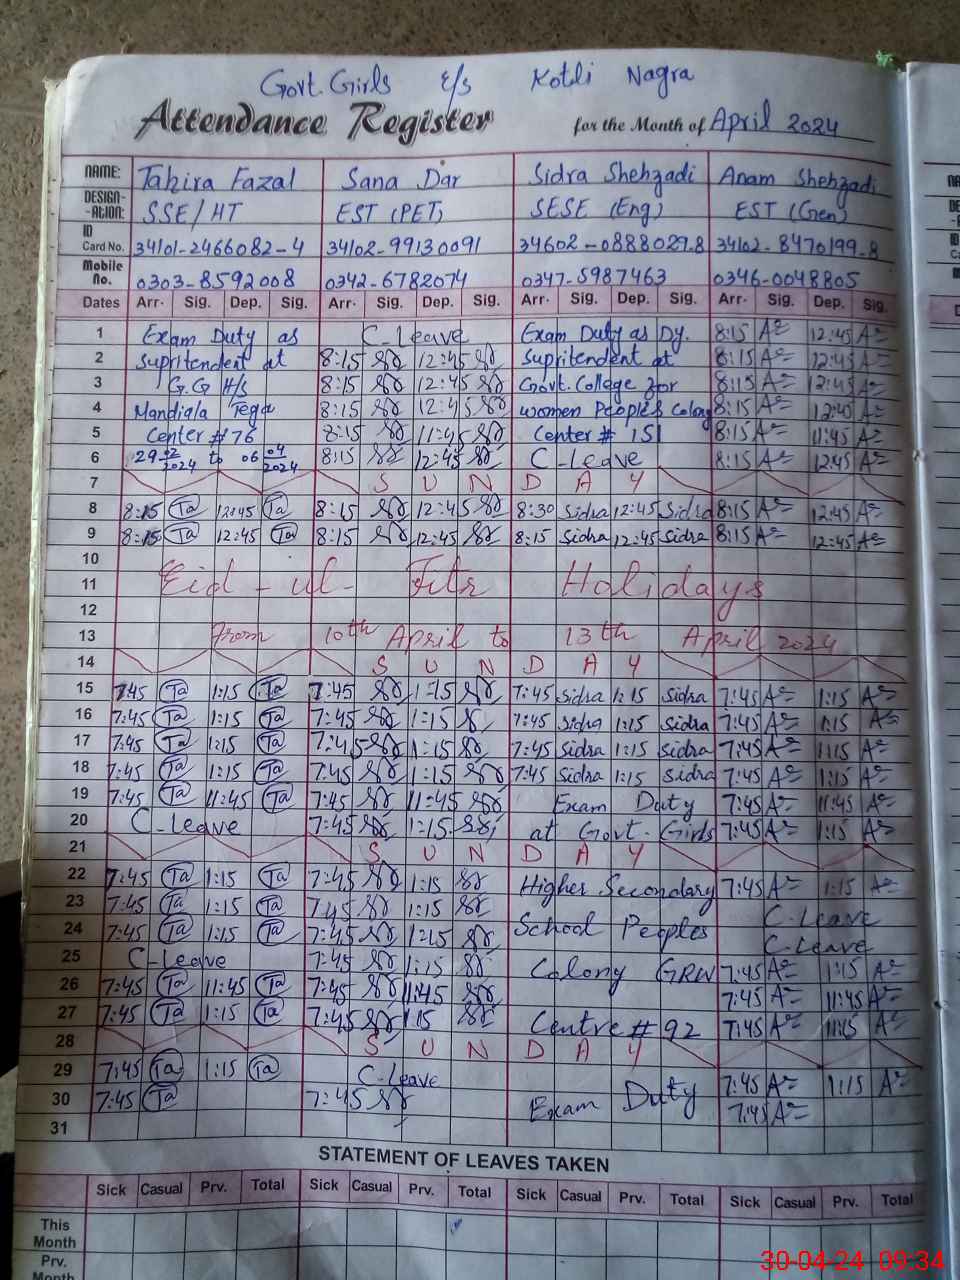 Govt. Girls E/S Kotli Nagra
Attendance Register for the Month of April 2024
NAME: Tahira Fazal Sana Dar Sidra Shehzadi Anam Shehzadi
DESIGN--ATION: SSE/HT EST (PET) SESE (Eng) EST (Gen)
ID Card No. 34101-2466082-4 34102-99130091 34602-0888029-8 34102-8470199-8
Mobile No. 0303-8592008 0342-6782074 0347-5987463 0346-0048805
Dates Arr. Sig. Dep. Sig. Arr. Sig. Dep. Sig. Arr. Sig. Dep. Sig. Arr. Sig. Dep. Sig.
1 Exam Duty as C-Leave Exam Duty as Dy. 8:15 12:45
2 Supritendent at 8:15 12:45 Supritendent at 8:15 12:45
3 G.G H/s 8:15 12:45 Govt. College for 8:15 12:45
4 Mandiala Tega 8:15 12:45 women Peoples Colony 8:15 12:45
5 Center # 76 8:15 11:45 Center # 151 8:15 11:45
6 29-02/2024 to 06 04/2024 8:15 12:45 C-Leave 8:15 12:45
7 S U N D A Y
8 8:15 Ta 12:45 Ta 8:15 12:45 8:30 Sidra 12:45 Sidra 8:15 12:45
9 8:15 Ta 12:45 Ta 8:15 12:45 8:15 Sidra 12:45 Sidra 8:15 12:45
10
11 Eid-ul-Fitr Holidays
12
13 From 10th April to 13th April 2024
14 S U N D A Y
15 7:45 Ta 1:15 Ta 7:45 1:15 7:45 Sidra 1:15 Sidra 7:45 1:15
16 7:45 Ta 1:15 Ta 7:45 1:15 7:45 Sidra 1:15 Sidra 7:45 1:15
17 7:45 Ta 1:15 Ta 7:45 1:15 7:45 Sidra 1:15 Sidra 7:45 1:15
18 7:45 Ta 1:15 Ta 7:45 1:15 7:45 Sidra 1:15 Sidra 7:45 1:15
19 7:45 Ta 11:45 Ta 7:45 11:45 Exam Duty 7:45 11:45
20 C-Leave 7:45 1:15 at Govt. Girls 7:45 1:15
21 S U N D A Y
22 7:45 Ta 1:15 Ta 7:45 1:15 Higher Secondary 7:45 1:15
23 7:45 Ta 1:15 Ta 7:45 1:15 C-Leave
24 7:45 Ta 1:15 Ta 7:45 1:15 School Peoples C-Leave
25 C-Leave 7:45 1:15 Colony GRW 7:45 1:15
26 7:45 Ta 11:45 Ta 7:45 11:45 7:45 11:45
27 7:45 Ta 1:15 Ta 7:45 1:15 Centre # 92 7:45 1:15
28 S U N D A Y
29 7:45 Ta 1:15 Ta C-Leave 7:45 1:15
30 7:45 Ta 7:45 Exam Duty 7:45
31
STATEMENT OF LEAVES TAKEN
Sick Casual Prv. Total Sick Casual Prv. Total Sick Casual Prv. Total Sick Casual Prv. Total
This Month
Prv. Month
30-04-24 09:34